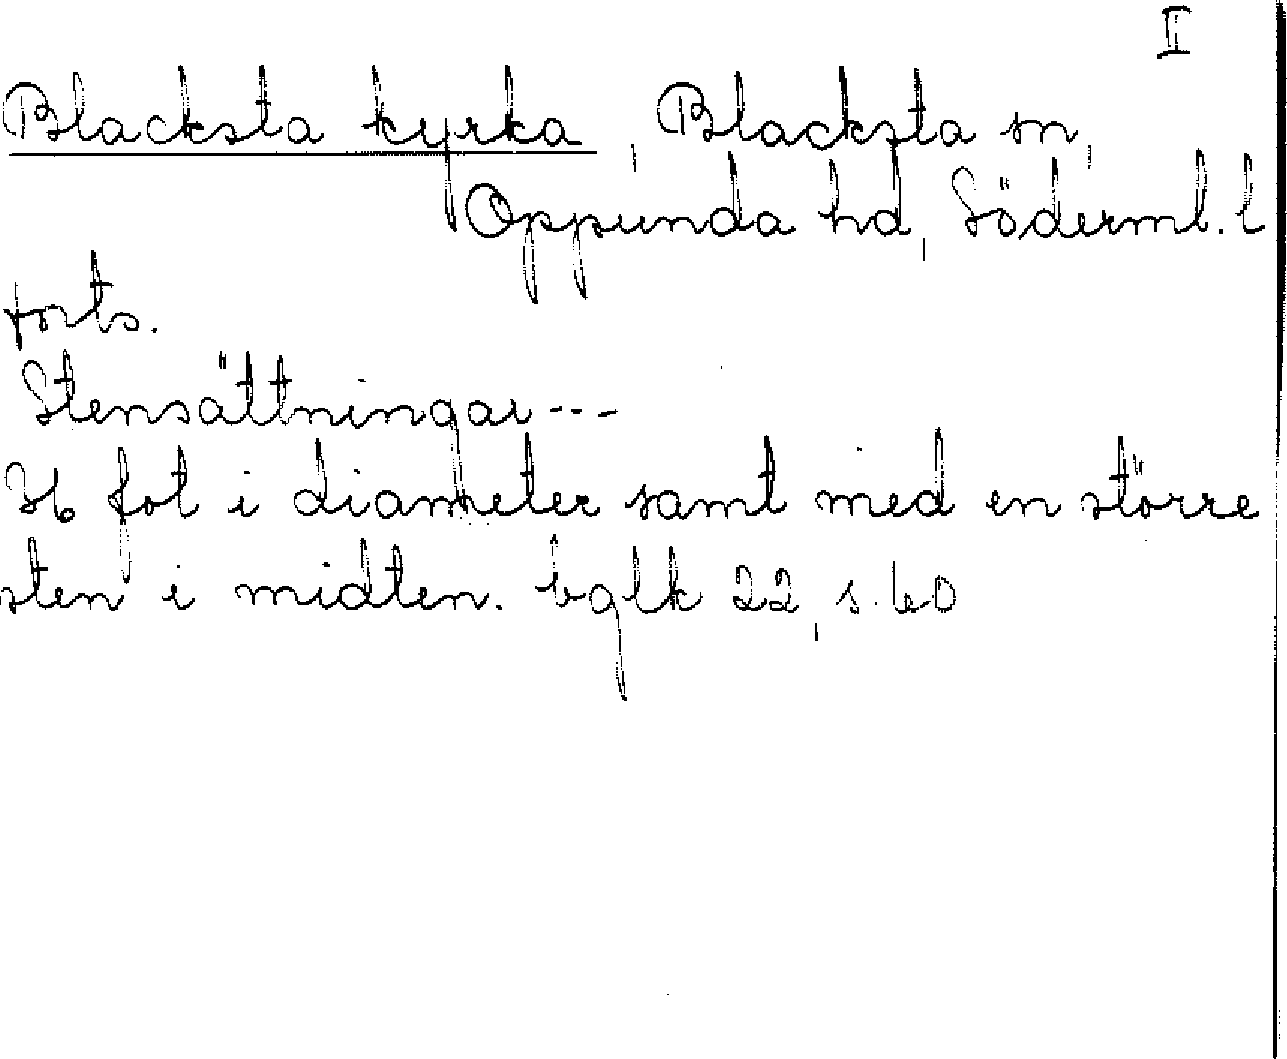 II
Blacksta kyrka, Blacksta sn,
Oppunda hd, Söderml. l
forts.
Stensättningar---
36 fot i diameter samt med en större
sten i midten. bglk 22, s. 60